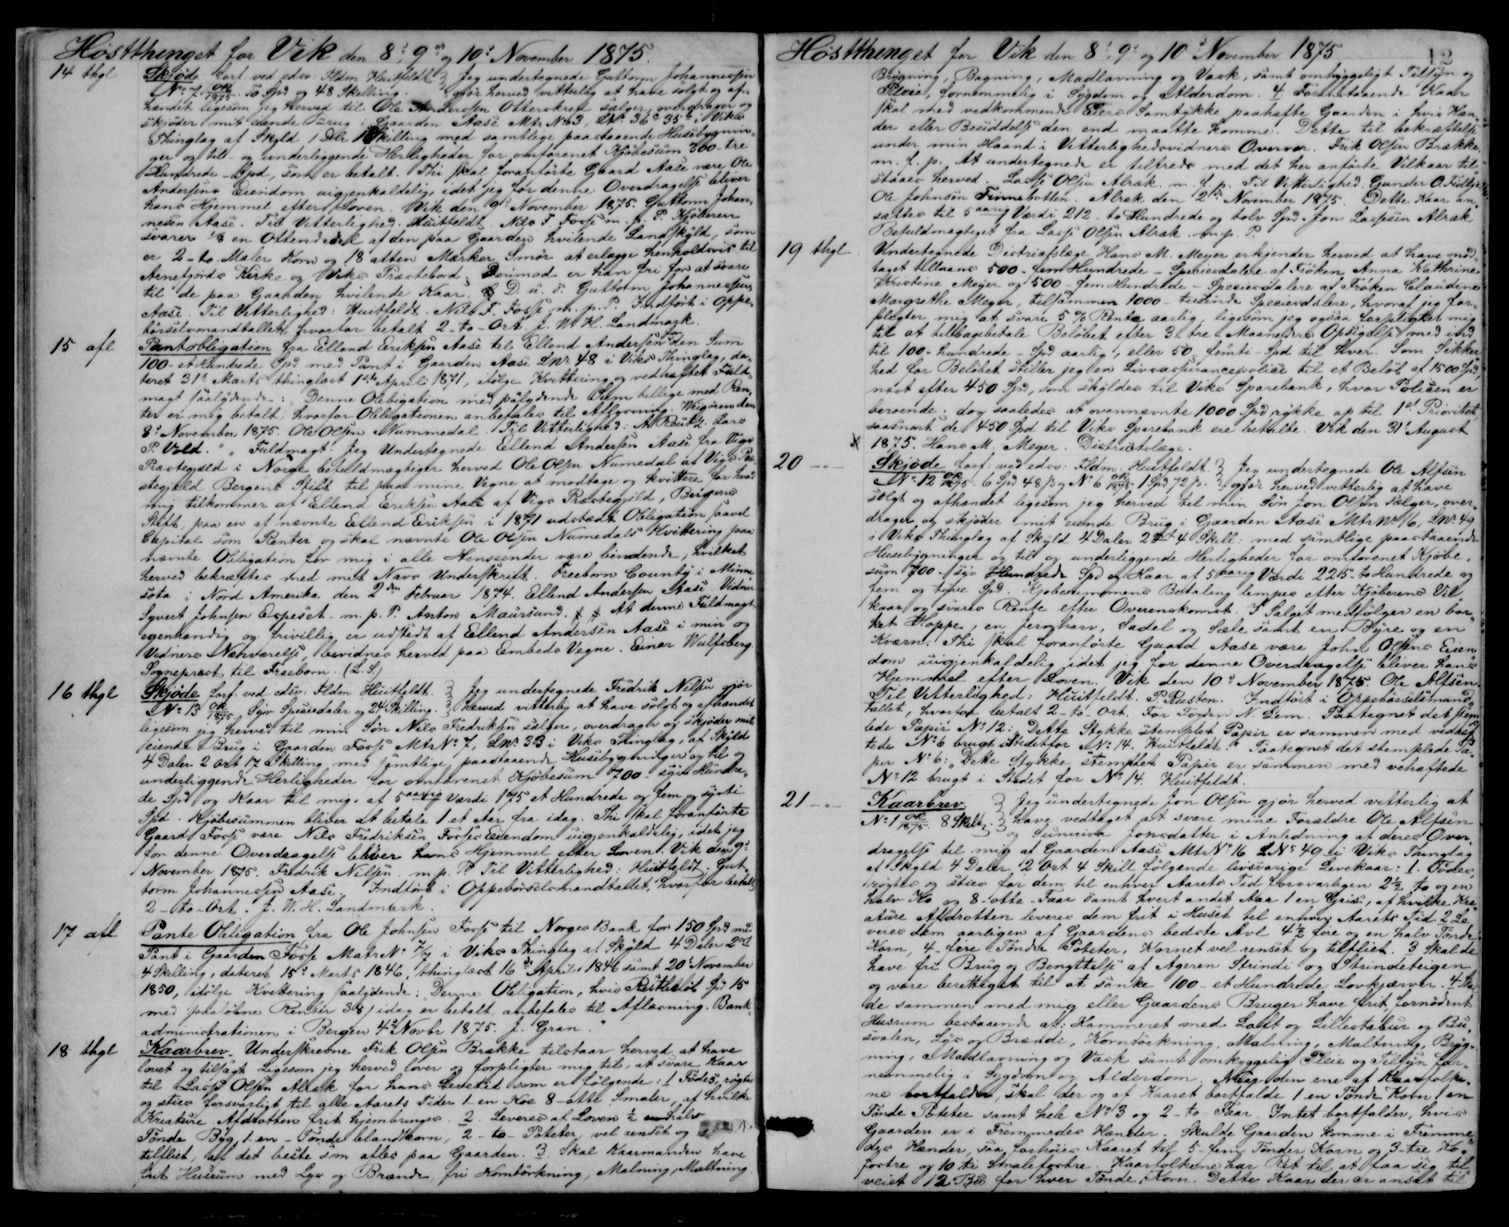 Høstthinget for Vik den 8d 9de og 10d November 1875.
14 thgl Skjøde conf. ved edsv: Fldm Huitfeldt. Jeg undertegnede Guttorm Johannessen
No 7 10 Spd og 48 Skilling. gjør herved vitterlig at have solgt og af-
hændet ligesom jeg herved til Ole Larssen Otterskred sælger, overdrager og
skjøder mit eiende Brug i Gaarden Aase Mtr No 3 i Viks
Thinglag af Skyld 1 Dlr Skilling med samtlige paastaaende Husebygnin-
ger og til- og underliggende Herligheder for omforenet Kjøbesum 300- tre
Hundrede Spd, som er betalt. Thi skal foranførte Gaard Aase være Ole
Andersens Eiendom uigjenkaldelig, idet jeg for denne Overdragelse bliver
hans Hjemmel efter Loven. Vik den 9d November 1875. Guttorm Johan-
nesen Aase. Til Vitterlighed: Huitfeldt. Nils F. Foss m. f. P. Kjøberen
svarer 1/8 en Ottendedel af den paa Gaarden hvilende Landskyld, som
er 2- to Maler Korn og 18 atten Mærker Smør at erlægge henholdsvis til
Arnefjords Kirke og Viks Præstebord. Derimod er han fri for at svare
til de paa Gaarden hvilende Kaar. D. u. s. Guttorm Johannessen
Aase. Til Vitterlighed: Huitfeldt. Nils F. Fosse m. p. P. Indført i Oppe-
børselsmandtallet, hvorfor betalt 2- to- Ort. f. W. H. Landmark.
15 afl Pantobligation fra Ellend Eriksen Aase til Ellend Andersen den Sum
100- et Hundrede Spd med Pant i Gaarden Aase LNr 48 i Viks Thinglag, da-
teret 31d Marts thinglæst 1ste April 1871, ifølge Kvittering og vedhæftet Fuld-
magt saalydende: Denne Obligation med paalydende Sum tillige med Ren-
ter er mig betalt, hvorfor Obligationen anbefales til Aflysning. Wigøren den
8d November 1875. Ole Olsen Nummedal. Til Vitterlighed: Lars
P. Vold. Fuldmagt: Jeg Undertegnede Ellend Andersen Aase fra Vigs
Præstegjeld i Norge befuldmægtiger herved Ole Olsen Numedal af Vigs Præ-
stegjeld Bergens Stift til paa mine Vegne at modtage og kvittere for hvad
mig tilkommer af Ellend Eriksen Aase af Vigs Præstegjeld, Bergens
Stift, paa en af nævnte Ellend Eriksen i 1871 udstædt Obligation, saavel
Capital som Renter og skal nævnte Ole Olsen Numedals Kvittering paa
nævnte Obligation for mig i alle Henseender være bindende, hvilket
herved bekræftes med mit Navns Underskrift. Freeborn County i Minne-
sota i Nord Amerika den 2den Februar 1874. Ellend Andersen Aase. Vidner
Syvert Johnsen Espeset. m. p. P. Anton Maursund. At denne Fuldmagt
egenhændig og frivillig er udstedt af Ellend Andersen Aase i min og
Vidners Nærværelse, bevidnes herved paa Embeds Vegne. Einar Wulfsberg
Sogneprest til Freeborn. (L.S.)
16 thgl Skjøde conf. ved edsv: Fldm Huitfeldt. Jeg undertegnede Fredrik Nilsen gjør
No 13 Syv Speciedaler og 24 Skilling. herved vitterlig at have solgt og afhændet
ligesom jeg herved til min Søn Nils Fredriksen sælger, overdrager og skjøder mit
eiende Brug i Gaarden Fosse Mtr No 7, LNr 33 i Viks Thinglag, af Skyld
4 Daler 2 Ort 17 Skilling, med samtlige paastaaende Husebygninger og til og
underliggende Herligheder for omforenet Kjøbesum 700 syv Hundre-
de Spd og Kaar til mig af 5 aarig Værdi 175 et Hundrede og fem og sytti
Spd. Kjøbesummen bliver at betale 1 et Aar fra idag. Thi skal foranførte
Gaard Fosse være Nils Fredriksen Fosses Eiendom uigjenkaldelig, idet jeg
for denne Overdragelse bliver hans Hjemmel efter Loven. Vik den 9d
November 1875. Fredrik Nilsen. m. p. P. Til Vitterlighed: Huitfeldt, Gut-
torm Johannessen Aase. Indført i Oppebørselsmandtallet, hvorfor betalt
2- to- Ort. f. W. H. Landmark.
17 afl Pante Obligation fra Ole Johnsen Fosse til Norges Bank for 150 Spd med
Pant i Gaarden Fosse Matr No 7/7 i Viks Thinglag af Skyld 4 Daler 2 Ort
4 Skilling, dateret 15d Marts 1846, thinglæst 16de April 1846 samt 20d November
1850, ifølge Kvittering saalydende: Denne Obligation, hvis Restbeløb Spd 15
med paaløbne Renter 38/ idag er betalt, anbefales til Aflæsning. Bank-
administrationen i Bergen 4d Novbr 1875. f. Gran.
18 thgl Kaarbrev. Underskrevne Erik Olsen Brække tilstaar herved at have
lovet og tilsagt Ligesom jeg herved lover og forpligter mig til, at svare Kaar
til Lasse Olsen Alrek for hans Levetid som er følgende: 1 Fødes, røgtes
og sties forsvarligt til alle Aarets Tider 1- en Koe 8- otte Smaler, af hvilke
Kreature Afdrotten frit hjembringes. 2 Leveres af Loven 1/2 en halv
Tønde Byg, 1- en- Tønde blandkorn, 2- to- Poteter, vel renset og
tiltlict, alt det beste som avles paa Gaarden. 3 Skal Kaarmanden have
frit Husrum med Lys og Brænde fri Korntørkning, Malning, Maltning
Høstthinget for Vik den 8d 9d og 10d November 1875
12
Brygning, Bagning, Madlavning og Vask, samt omhyggeligt Tillsyn og
Pleie, fornemmelig i Sygdom og Alderdom. 4 Foranstaaende Kaar
skal med vedkommende Eiers Samtykke paahefte Gaarden i hvis Hæn-
der eller Besiddelse den end maatte komme. Dette til bekræftelse
under min Haand i Vitterlighedsvidners Overvær. Erik Olsen Brække
m. f. p. At undertegnede er tilfreds med det her anførte Vilkaar til-
staaes herved. Lasse Olsen Alrek m. f. p. Til Vitterlighed Gunder O. Fidtje
Ole Johnsen Finnebotten. Alrek den 2den November 1875. Dette Kaar an-
sættes til 5 aarig Værdi 212- to Hundrede og tolv Spd. Jon Lassesen Alrek
Befuldmægtiget fra Lasse Olsen Alrek m. p. P.
19 thgl. Undertegnede Distriktslæge Hans M. Meyer erkjender herved at have mod-
taget tillaans 500- fem Hundrede- Speciedaler af Frøken Anna Kathrine
Kristene Meyer og 500- fem Hundrede- Speciesdalere af Frøken Claudine
Margrethe Meyer, tilsammen 1000- tusinde Speciesdalere, hvoraf jeg for-
pligter mig at svare 5 % Rente aarlig, ligesom jeg ogsaa forpligter mig
til at tilbagebetale Beløbet efter 3- tre Maaneders Opsigelse med ind
til 100- hundrede- Spd aarlig, eller 50, femti- Spd til hver. Som Sikker-
hed for Beløbet stiller jeg en Livsassurancepolice til et Beløb af 1500 Spd
næst efter 450 Spd, som skyldes til Viks Sparebank, hvor Policen er
beroende, dog saaledes at ovennævnte 1000 Spd rykke op til 1ste Prioritet,
saasnart de 450 Spd til Viks Sparebank ere betalte. Vik den 31d August
1875. Hans M. Meyer. Distriktslæge.
20 - - Skjøde conf: ved edsv: Fldm. Huitfeldt. Jeg undertegnede Ole Alfsen
No 12 6 Spd 48 ß og No 6 1 Spd 72 ß. gjør herved vitterlig at have
solgt og afhændet ligesom jeg herved til min Søn Jon Olsen sælger, over-
drager og skjøder mit eiende Brug i Gaarden Aase Mtr No 16, LNr 49
i Viks Thinglag af Skyld 4 Daler 2 Ort 4 Skill: med samtlige paastaaende
Husebygninger og til og underliggende Herligheder for omforenet Kjøbe-
sum 700- syv Hundrede Spd og Kaar af 5 aarig Værdi 225- to Hundrede og
fem og tyve Spd. Kjøbesummens Betaling lempes efter Kjøberens Vil-
kaar og svares Rente efter Overenskomst. I Salget medfølger en bor-
ket Hoppe, en Jernharv, Sadel og Sæle samt en Byre og en
Kværn. Thi skal foranførte Gaard Aase være John Olsens Eien-
dom uigjenkaldelig idet jeg for denne Overdragelse bliver hans
Hjemmel efter Loven. Vik den 10d November 1875. Ole Alfsen.
Til Vitterlighed: Huitfeldt. P. Rusten. Indført i Oppebørselsmand-
tallet, hvorfor betalt 2- to- Ort. For Sorden N. Dem. Paategnet det stemp-
lede Papir No 12: Dette Stykke stemplet Papir er sammen med vedhæf-
tede No 6 brugt istedetfor No 14. Huitfeldt. Paategnet det stemplede Pa-
pir No 6: Dette Stykke stemplet Papir er sammen med vehæftede
No 12 brugt i Stedet for No 14. Huitfeldt.
21 - - Kaarbrev. Jeg undertegnede Jon Olsen gjør herved vitterlig at
No 1 8 Skill. have vedtaget at svare mine Forældre Ole Alfsen
og Sunniva Jonsdatter i Anledning af deres Over-
dragelse til mig af Gaarden Aase Mtr No 16 LNo 49 i Viks Thinglag
af Skyld 4 Daler 2 Ort 4 Skill følgende livsvarige Levekaar: 1. Fødes,
røgtes og sties for dem til enhver Aarets Tid forsvarligen 2 1/2 to og en
halv Ko og 8- otte- Faar samt hvert andet Aar 1 en Gris, af hvilke Kre-
ature Afdrotten leveres dem frit i Huset til enhver Aarets Tid. 2 Le-
veres dem aarligen af Gaardens bedste Avl 4 1/2 fire og en halv Tønde
Korn, 4, fire Tønder Poteter, Kornet vel renset og tiltlict. 3 Skal de
have fri Brug og Benyttelse af Ageren Strindi og Strindeteigen
og være berettiget til at sanke 100- et Hundrede Lovkjærver. 4 Ska-
de sammen med mig eller Gaardens Bruger have frit fornødent
Husrum bestaaende af: Kammeret med Loft og Lillestabur og Bu-
svalen, Lys og Brænde, Korntørkning, Malning, Maltning, Bryg-
ning, Madlavning og Vask samt omhyggelig Pleie og Tilsyn for-
nemmelig i Sygdom og Alderdom. Naar den ene af Kaarfolke-
ne bortfalder skal der og af Kaaret bortfalde 1 en Tønde Korn 1 en
Tønde Poteter samt hele No 3 og 2- to Faar. Intet bortfalder, hvis
Gaarden er i Fremmedes Hænder. Skulde Gaarden komme i Fremme-
des Hænder, saa forhøies Kaaret til 5- fem Tønder Korn og 3- tre Ko-
fostre og 10 ti Smalefostre. Kaarfolkene har Ret til at faa sig til-
veiet 12 Bsm for hver Tønde Korn. Dette Kaar der er ansat til